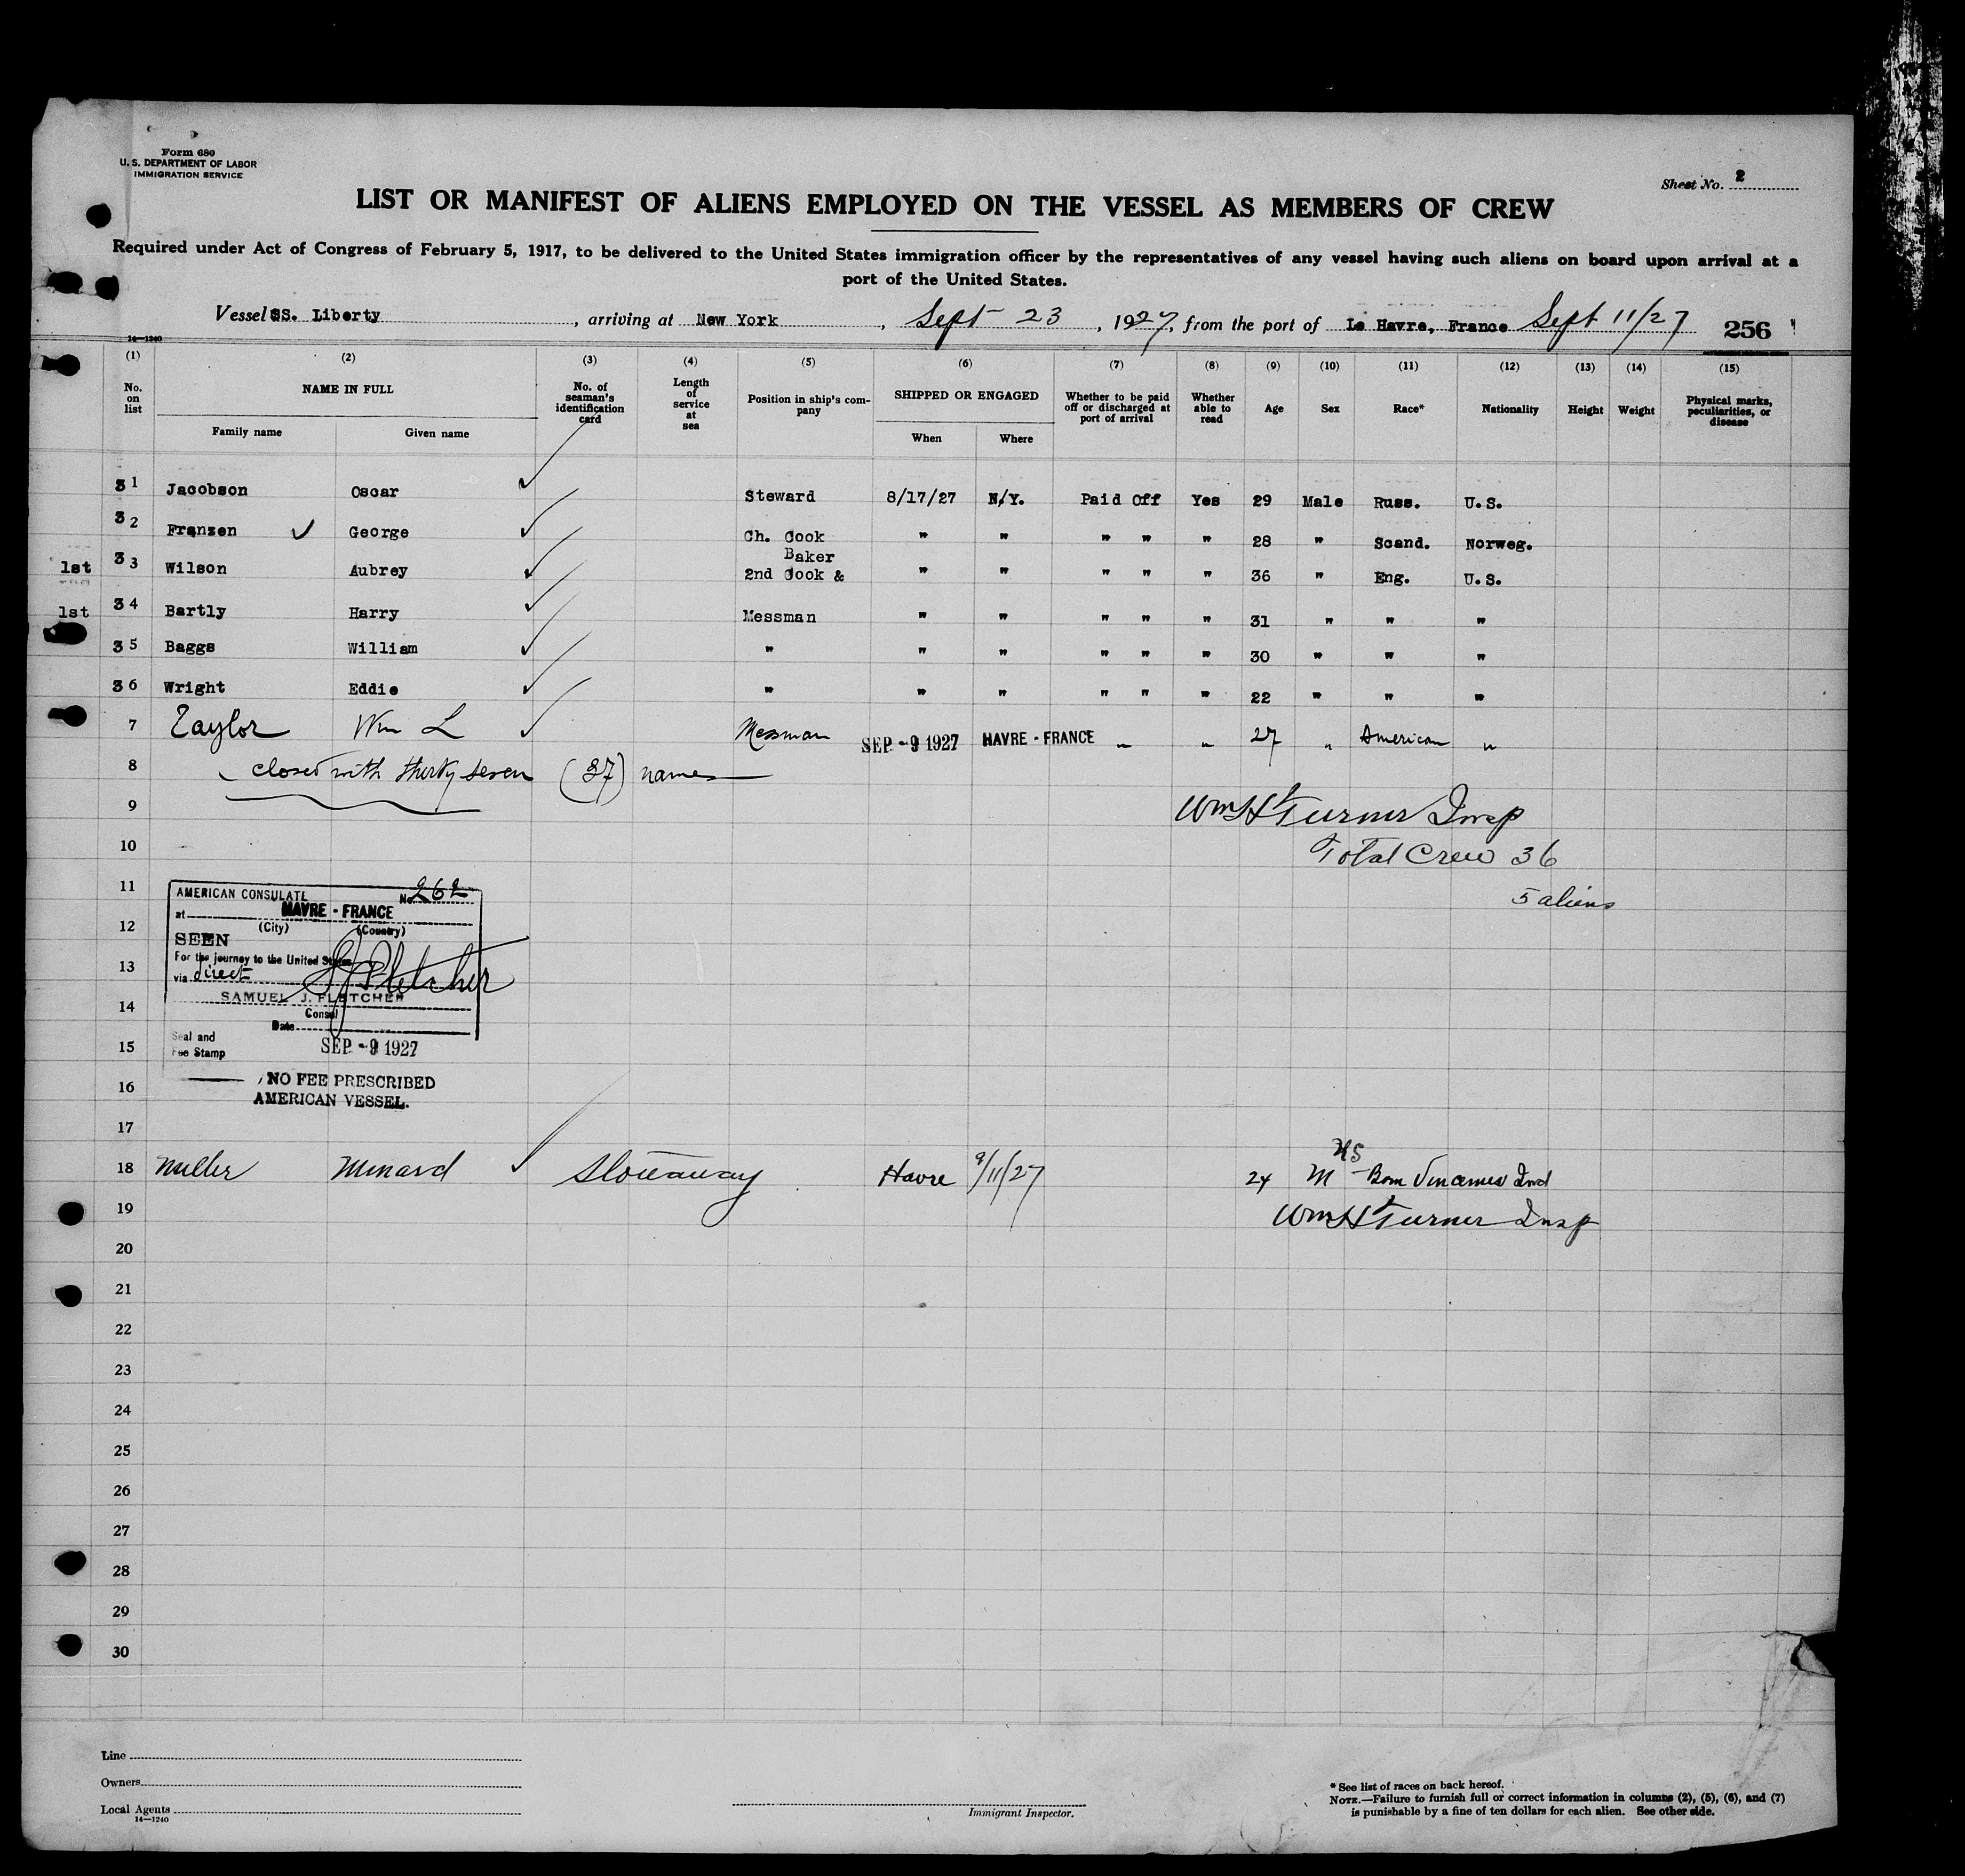 Form 680
U. S. DEPARTMENT OF LABOR
IMMIGRATION SERVICE
Sheet No. 2
LIST OR MANIFEST OF ALIENS EMPLOYED ON THE VESSEL AS MEMBERS OF CREW
Required under Act of Congress of February 5, 1917, to be delivered to the United States immigration officer by the representatives of any vessel having such aliens on board upon arrival at a
port of the United States.
Vessel SS. Liberty, arriving at New York, Sept 23, 1927, from the port of Le Havre, France Sept 11/27 256
14—1240
(1) (2) (3) (4) (5) (6) (7) (8) (9) (10) (11) (12) (13) (14) (15)
No. on list NAME IN FULL No. of seaman's identification card Length of service at sea Position in ship's company SHIPPED OR ENGAGED Whether to be paid off or discharged at port of arrival Whether able to read Age Sex Race* Nationality Height Weight Physical marks, peculiarities, or disease
Family name Given name When Where
31 Jacobson Oscar Steward 8/17/27 N/Y. Paid Off Yes 29 Male Russ. U.S.
32 Franzen George Ch. Cook " " " " " 28 " Scand. Norweg.
Baker
1st 33 Wilson Aubrey 2nd Cook & " " " " " 36 " Eng. U.S.
1st 34 Bartly Harry Messman " " " " " 31 " " "
35 Baggs William " " " " " " 30 " " "
36 Wright Eddie " " " " " " 22 " " "
7 Taylor Wm L Messman SEP -9 1927 HAVRE - FRANCE " " 27 " American "
8 closed with thirty seven (37) names
9 Wm H Turner Insp
10 Total Crew 36
11 5 aliens
AMERICAN CONSULATE No. 262
at HAVRE - FRANCE
(City) (Country)
12
SEEN
For the journey to the United States
13
via direct SJ Fletcher
SAMUEL J. FLETCHER
14
Consul
Date
Seal and
15 SEP -9 1927
Fee Stamp
16 NO FEE PRESCRIBED
AMERICAN VESSEL.
17
US
18 Miller Menard Stowaway Havre 9/11/27 24 M - Born Vincennes Ind
19 Wm H Turner Insp
20
21
22
23
24
25
26
27
28
29
30
Line
Owners
Local Agents
14—1240
Immigrant Inspector.
* See list of races on back hereof.
NOTE.—Failure to furnish full or correct information in columns (2), (5), (6), and (7)
is punishable by a fine of ten dollars for each alien. See other side.